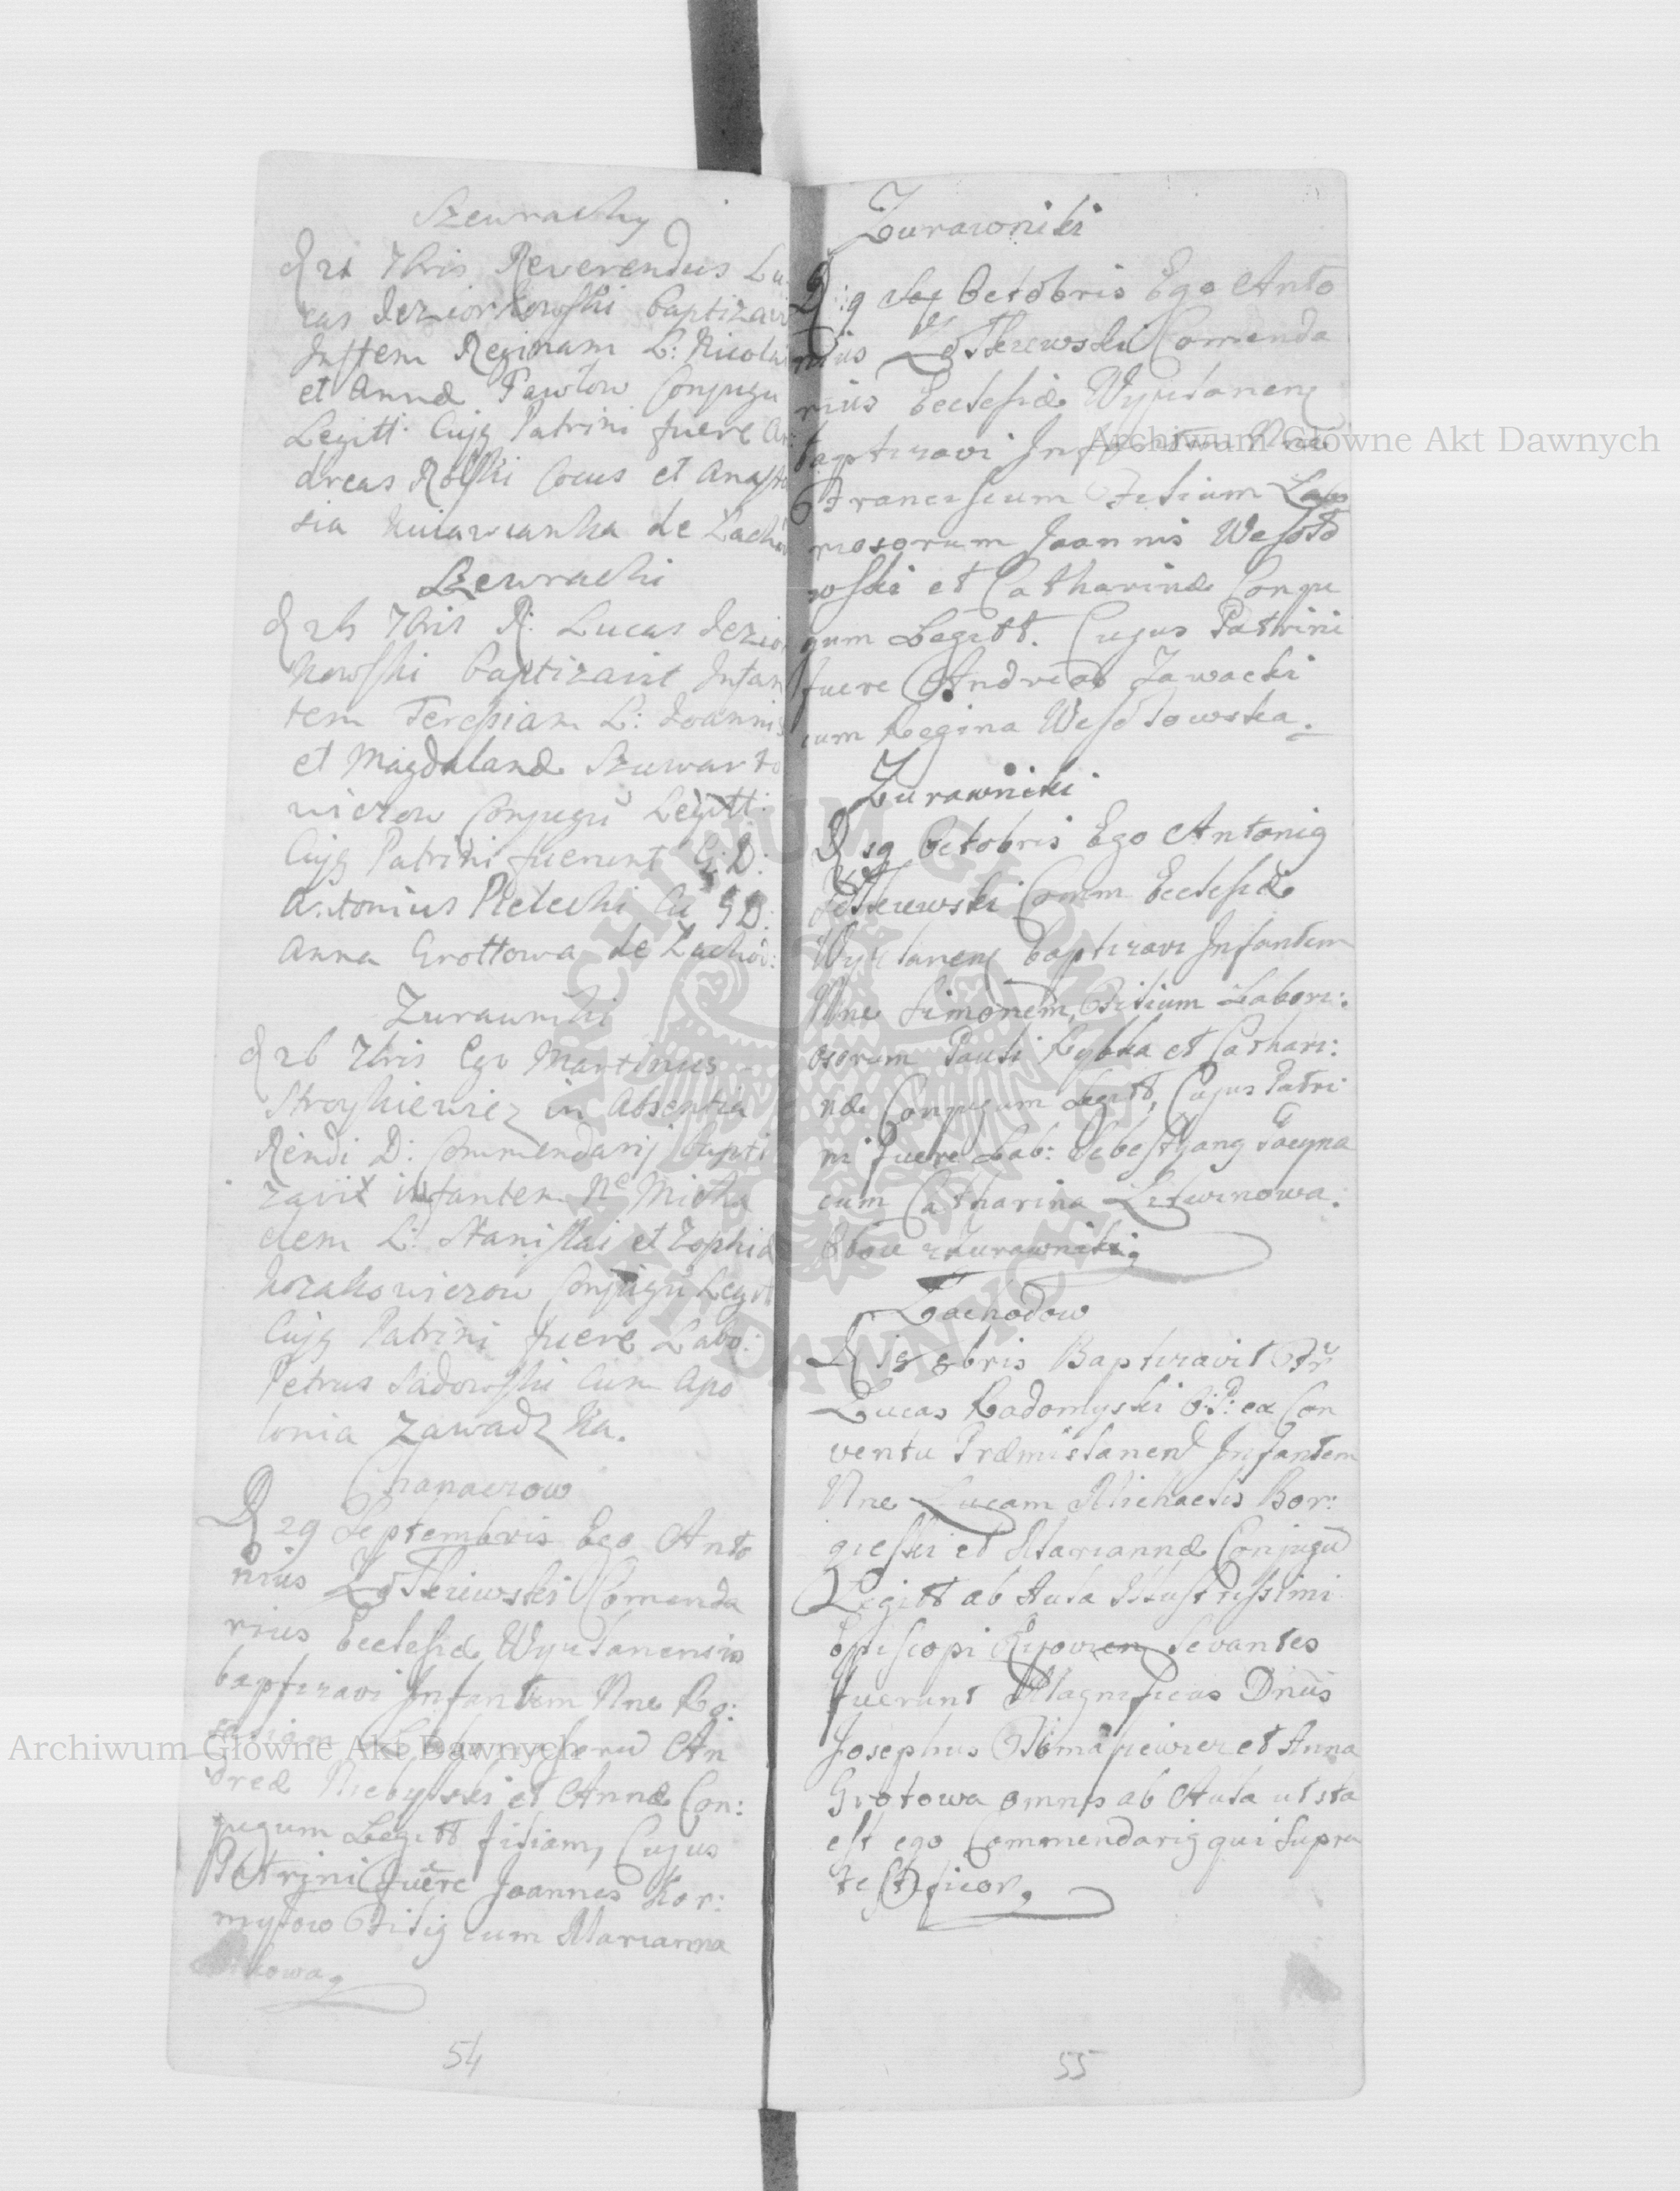 Szewrachy
D 21 7bris Reverendus Lu
cas Jeziorkowski baptizavi
Inftem Reginam L: Nicolai
et Annæ Pawłow Conjugu
Legitt: Cujg Patrini fuere An
dreas Rolski Cocus et Anasta
sia Kuiawianka de Lacho
Szewrachi
D 25 7bris R: Lucas Jezior
kowski baptizavit Infan
tem Teresiam L: Joannis
et Magdalenæ Szuwarto
wiczow Conjugū Legitt:
Cujg Patrini fuerunt G: D:
Antonius Pielecki Cū G D:
Anna Grottowa de Lachod:
Zurawniki
D 26 7bris Ego Martinus
Stroykiewicz in Absentia
Rēndi D: Commendarij bapti
zavit infantem Ne Micha
elem L: Stanislai et Zophiæ
Kozakowiczow Conjugū Legitt
Cujg Patrini fuere Labo:
Petrus Sadowski Cum Apo
lonia Zawadzka.
Chanaczow
D 29 Septembris Ego Anto
nius Comenda
rius Ecclesiæ Wyzlanensis
baptizavi Infantem Nne Ro:
An
dreæ et Annæ Con:
jugum Legitt filiam, Cujus
Patrini fuere Joannes Kor:
myłow Filig cum Marianna
54
Zurawniki
D: 9 Octobris Ego Anto
nius Comenda
rius Ecclesiæ Wyzlanens
baptizavi Infantem Nne
Franciscum Filium Labo
riosorum Joannis Wesoło
wski et Catharinæ Conju
gum Legitt. Cujus Patrini
fuere Andreas Zawacki
cum Regina Wesołowska.
Zurawniki
D 19 Octobris Ego Antonig
Comm Ecclesiæ
Wyzlanens baptizavi Infantem
Nne Simonem, Filium Labori:
osorum Pauli Rybka et Cathari:
næ Conjugum Legitt, Cujus Patri:
ni fuere Lab: Sebestyang
cum Catharina Litwinowa.
Oboie z Zurawniki
Lachodow
D 18 8bris Baptizavit Fr
Lucas Radomyski O: P: ex Con
ventu Præmislanens Infantem
Nne Lucam Michaelis Bor:
gieski et Mariannæ Conjugū
Legitt ab Aula Illustrissimi
Episcopi Kyovien Levantes
fuerunt Magnificus Dnus
Josephus et Anna
Grotowa omnes ab Aula ut ita
est ego Commendarig qui supra
testificor,
55